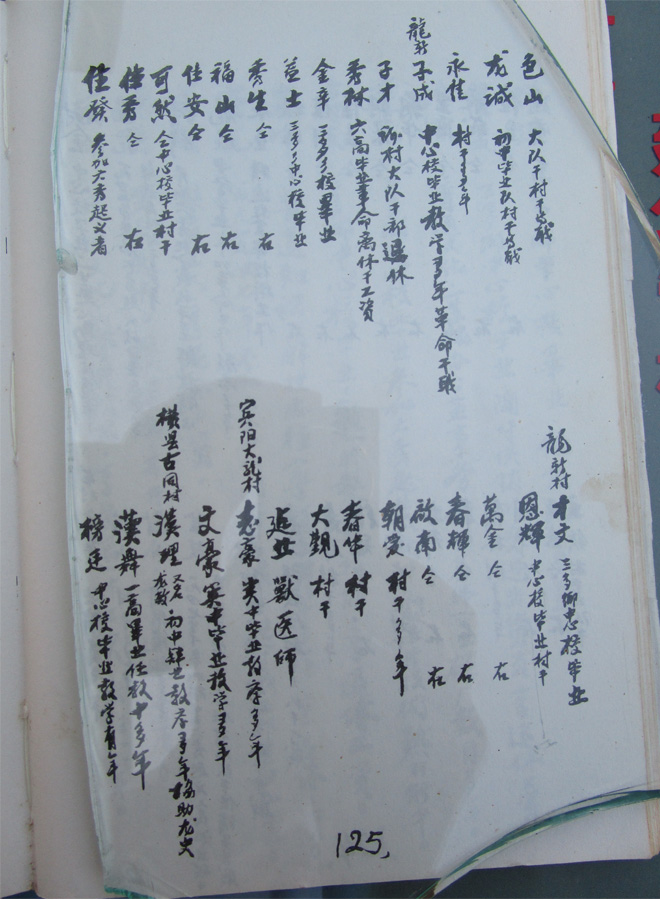 色山 大队干村干多戝
龙诚 初中毕业队村干多戝
永佳 村干多年
龍新 子成 中心校毕业教学多年革命干戝
子才 村大队干部退休
秀林 六高毕业革命离休干工资
金辛 三多乡校畢业
益士 三多乡中心校毕业
秀生 仝 右
福山 仝 右
佳安 仝 右
可然 仝中心校毕业村干
佳秀 仝 右
佳發 参加六秀起义者
龍新村 才文 三多乡忠校毕业
恩輝 中心校毕业村干
萬金 仝 右
春輝 仝 右
啟南 仝 右
朝爱 村干多年
春华 村干
大觀 村干
延业 獸医师
宾阳大龍村 志豪 实中毕业教学多年
文豪 实中毕业教学多年
横县古同村 漢理 又名龙政 初中肄业教学多年協助龙史
漢舞 一高畢业任教十多年
榜廷 中心校毕业教学有年
125,